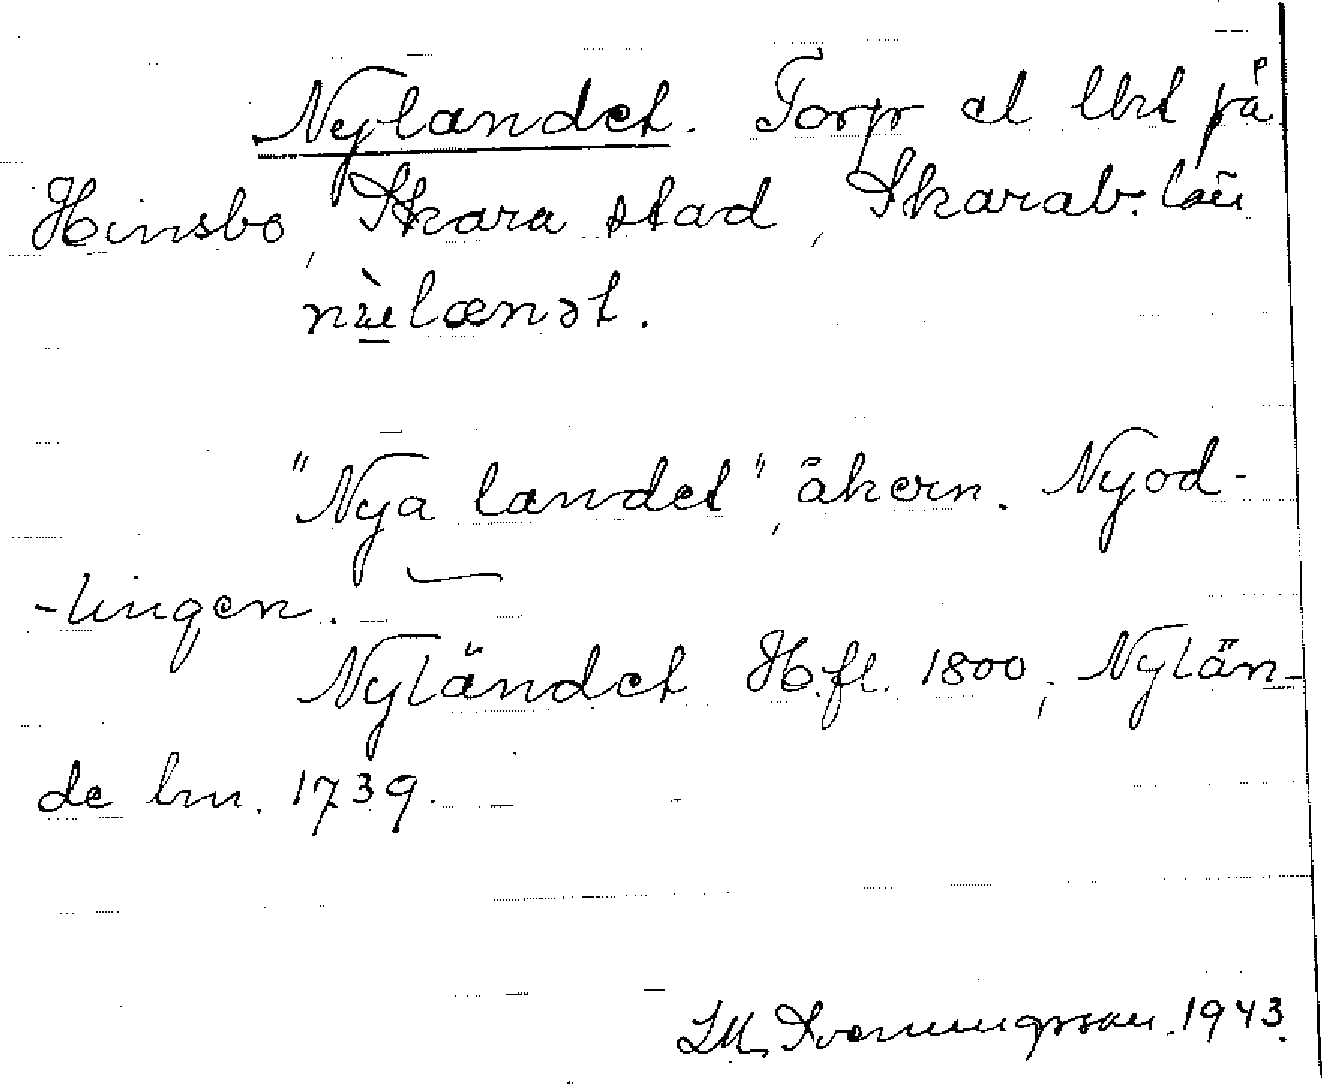 Nylandet. Torp el lht på
Hinsbo, Skara stad, Skarab. län
nẁelænət.
"Nya landet", åkern. Nyod-
-lingen.
Nyländet Hfl. 1800, Nylän-
de hm. 1739.
Sveningsson. 1943.